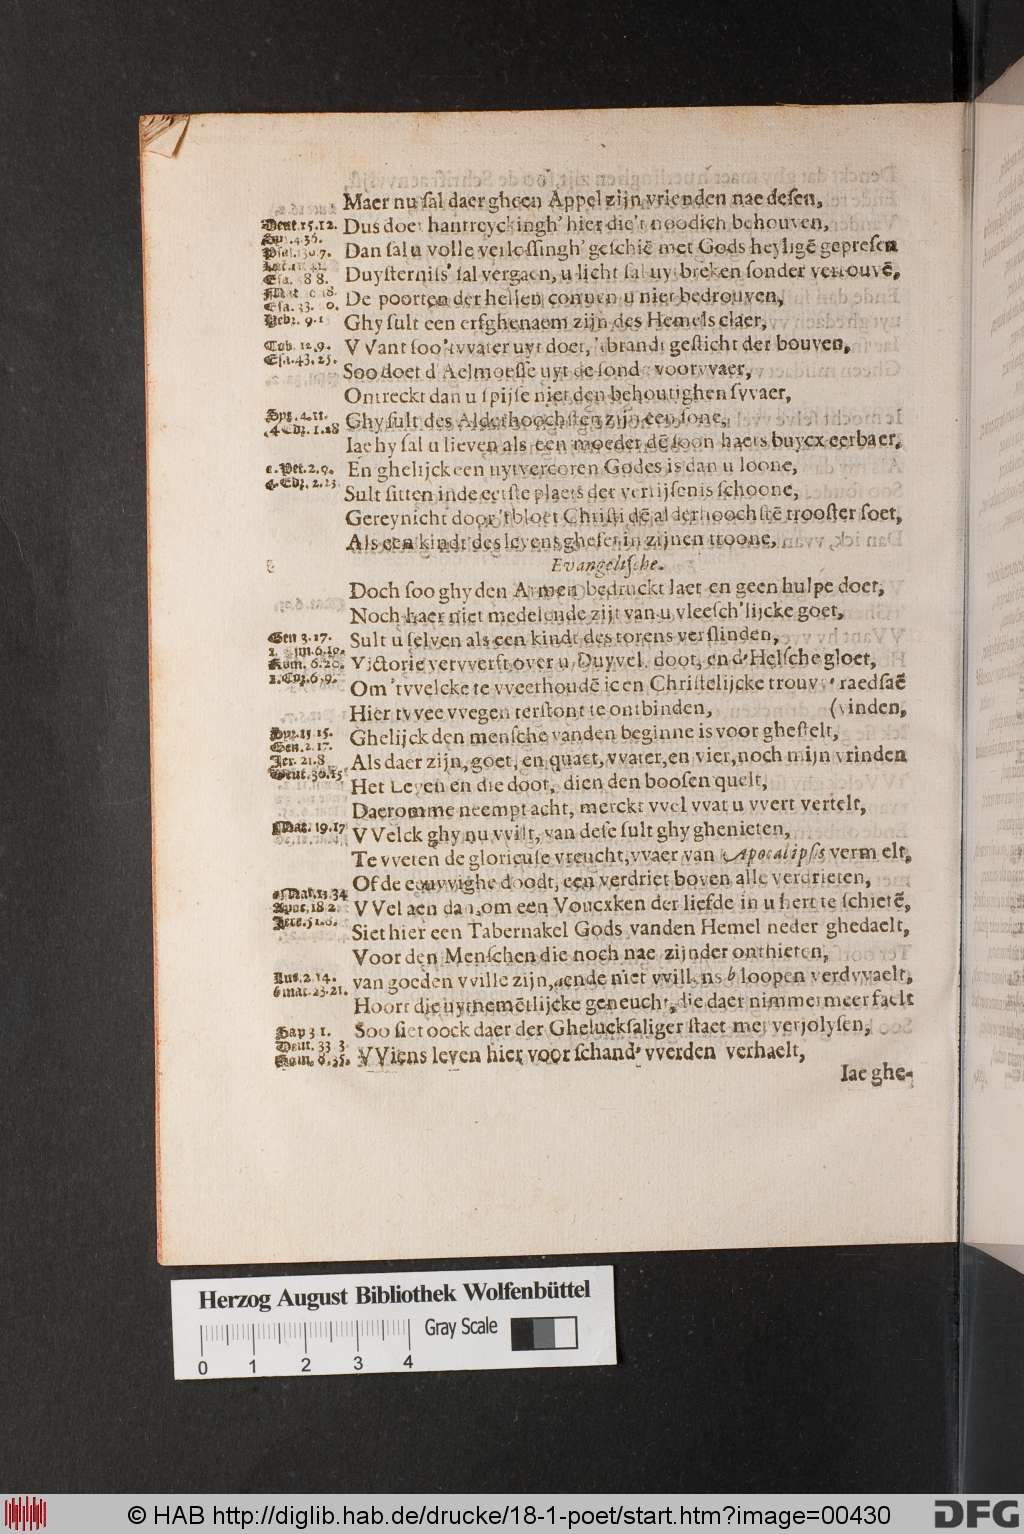 Maer nu sal daer gheen Appel zijn vrienden nae desen,
Deut. 15. 12. Dus doet hantreyckingh' hier die't noodich behouven,
Dan sal u volle verlossingh' geschiē met Gods heyligē gepresen
Duysternis' sal vergaen, u licht sal uytbreken sonder
De poorten der hellen connen u niet bedrouven,
Heb. 9. 1 Ghy sult een erfghenaem zijn des Hemels claer,
Tob. 12. 9. VVant soo 'tvvater uyt doet, 'tbrandt gesticht der bouven,
Soo doet d'Aelmoesse uyt de sond' voorvvaer,
Ontreckt dan u spijse niet den behoutighen svvaer,
Ghy sult des Alderhoochsten zijn een sone,
4. Edz. 1. 28 Iae hy sal u lieven als een moeder dē soon haers buycx eerbaer,
1. Pet. 2. 9. En ghelijck een uytvercoren Godes is dan u loone,
4. Edz. 2. 23 Sult sitten inde eerste plaets der verrijsenis schoone,
Gereynicht door 'tbloet Christi dē alderhoochstē trooster soet,
Als een kindt des levens gheset in zijnen troone,
Evangelische.
Doch soo ghy den Armen bedruckt laet en geen hulpe doet,
Noch haer niet medelende zijt van u vleesch'lijcke goet,
Gen 3. 17. Sult u selven als een kindt des torens verslinden,
Rom. 6. 20. Victorie vervverft over u, Duyvel, doot, en d'Helsche gloet,
2. Cor. 6. 9. Om 'tvvelcke te vveerhoudē ic en Christelijcke trouv' raedsaē
Hier tvvee vvegen terstont te ontbinden, (vinden,
Ghelijck den mensche vanden beginne is voor ghestelt,
Gen. 2. 17.
Jer. 21. 8 Als daer zijn, goet, en quaet, vvater, en vier, noch mijn vrinden
Deut. 30. 15 Het Leven en die doot, dien den boosen quelt,
Daeromme neempt acht, merckt vvel vvat u vvert vertelt,
Mat. 19. 17 VVelck ghy nu vvilt, van dese sult ghy ghenieten,
Te vveten de glorieuse vreucht, vvaer van Apocalipsis vermelt,
Of de eeuvvighe doodt, een verdriet boven alle verdrieten,
Apoc. 18 2. VVel aen dan, om een Voucxken der liefde in u hert te schietē,
Jere. 51. 6. Siet hier een Tabernakel Gods vanden Hemel neder ghedaelt,
Voor den Menschen die noch nae zijnder onthieten,
Luc. 2. 14. van goeden vville zijn, ende niet vvillens loopen verdvvaelt,
Mat. 23. 21. Hoort die uytnemētlijcke geneucht, die daer nimmermeer faelt
Sap 3 1. Soo siet oock daer der Ghelucksaliger staet met verjolysen,
Deut. 33 3
Rom. 8. 35. VViens leven hier voor schand' vverden verhaelt,
Iae ghe-
Herzog August Bibliothek Wolfenbüttel
Gray Scale
0 1 2 3 4
© HAB http://diglib.hab.de/drucke/18-1-poet/start.htm?image=00430
DFG